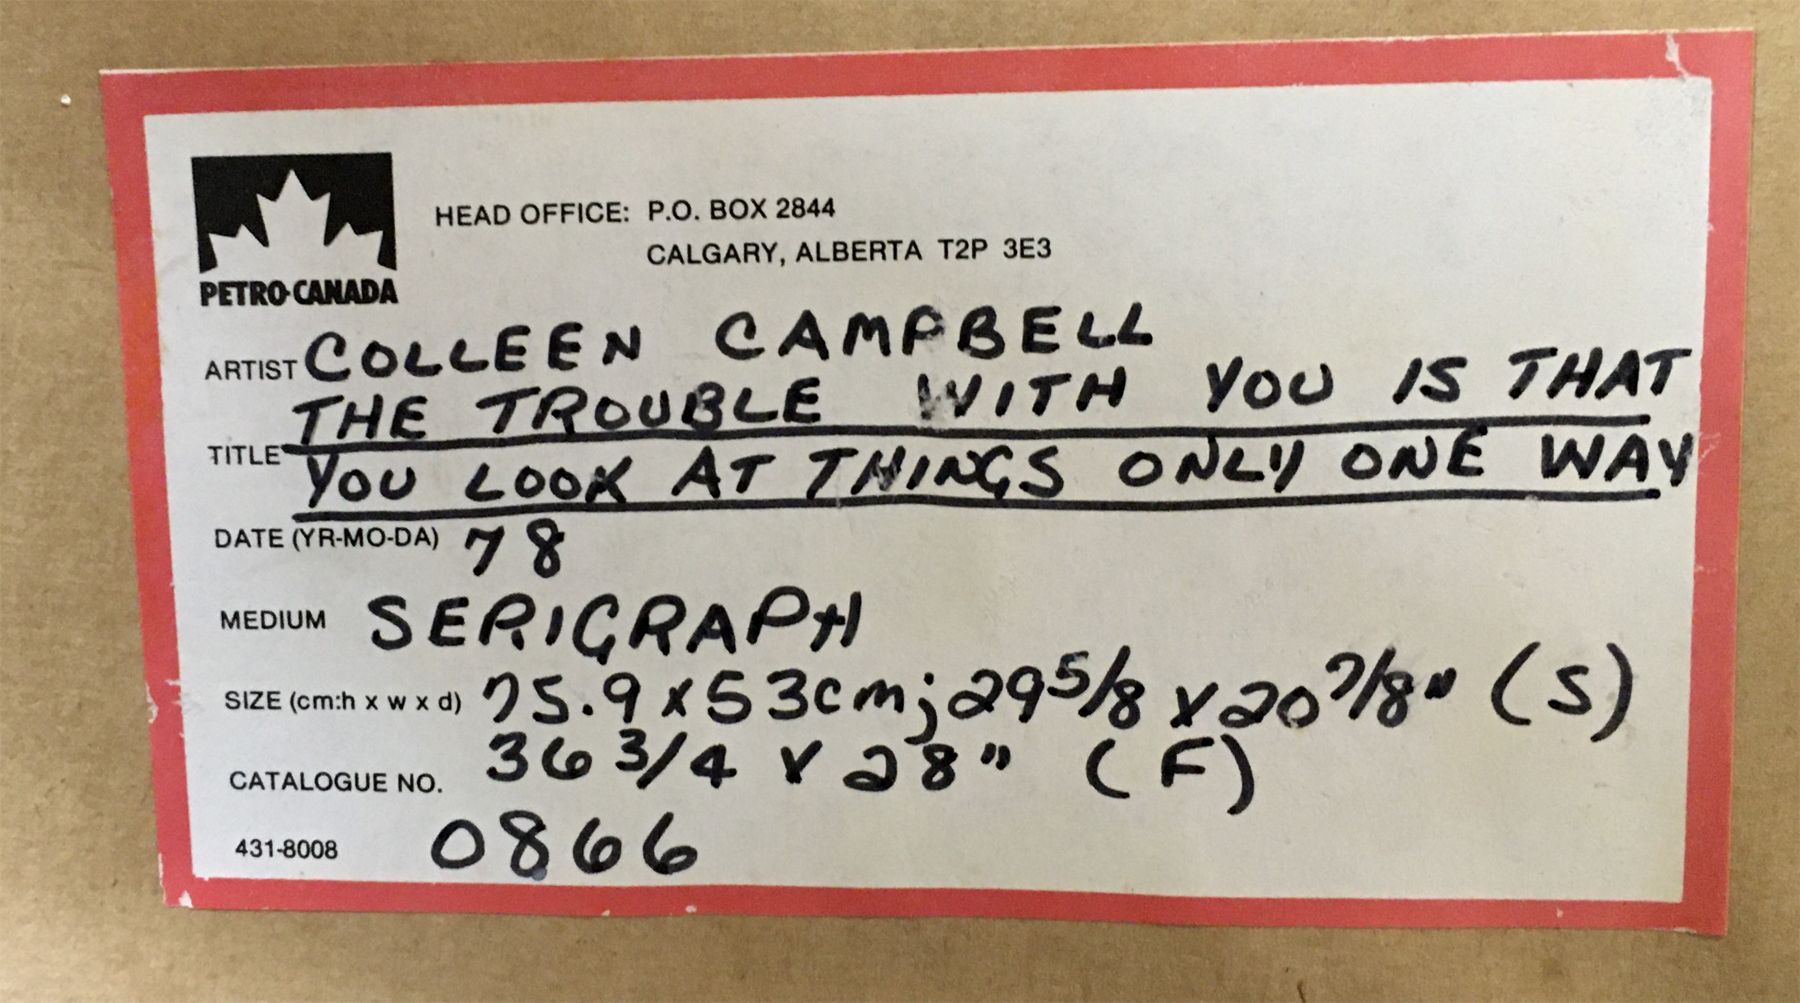 PETRO-CANADA
HEAD OFFICE: P.O. BOX 2844
CALGARY, ALBERTA T2P 3E3
ARTIST COLLEEN CAMPBELL
THE TROUBLE WITH YOU IS THAT
TITLE YOU LOOK AT THINGS ONLY ONE WAY
DATE (YR-MO-DA) 78
MEDIUM SERIGRAPH
SIZE (cm:h x w x d) 75.9 x 53 cm; 29 5/8 x 20 7/8" (S)
36 3/4 x 28" (F)
CATALOGUE NO.
431-8008 0866